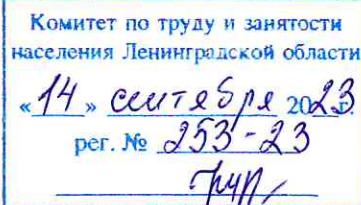 Комитет по труду и занятости
населения Ленинградской области
«14» сентября 2023г.
рег. № 253-23